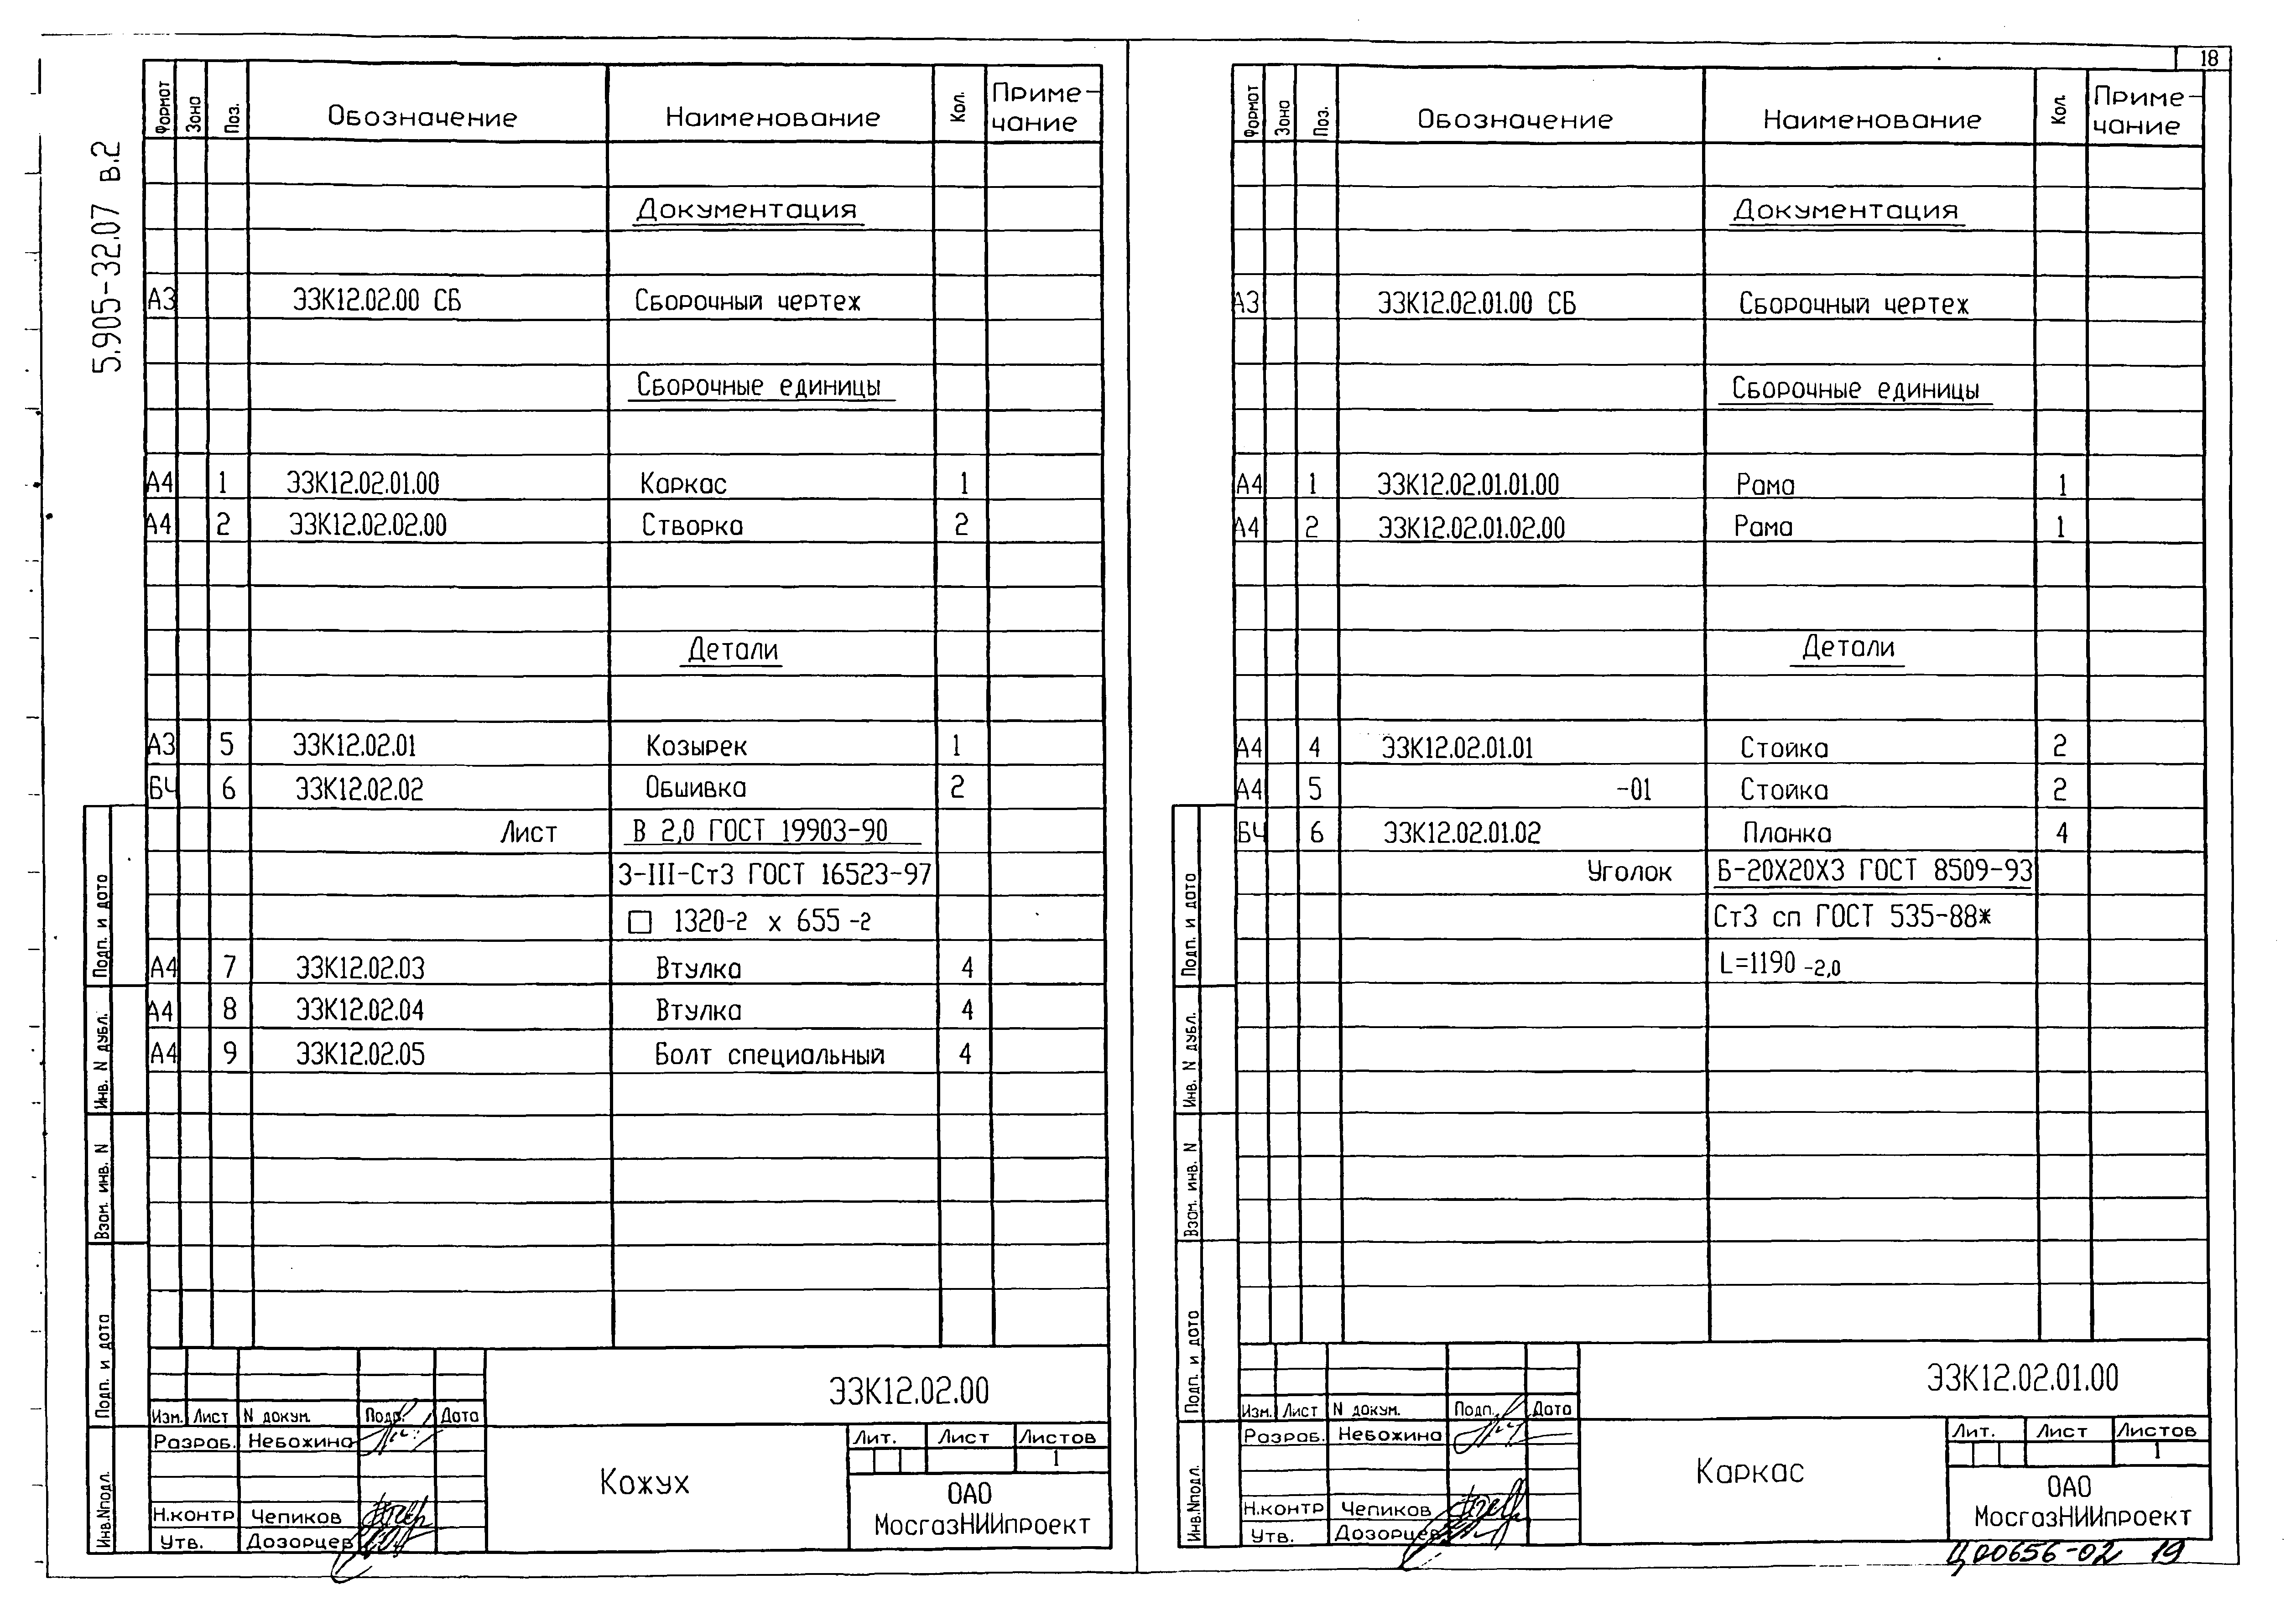 18
5.905-32.07 в.2
Формат Зона Поз. Обозначение Наименование Кол. Приме-
чание
Документация
А3 ЭЗК12.02.00 СБ Сборочный чертеж
Сборочные единицы
А4 1 ЭЗК12.02.01.00 Каркас 1
А4 2 ЭЗК12.02.02.00 Створка 2
Детали
А3 5 ЭЗК12.02.01 Козырек 1
БЧ 6 ЭЗК12.02.02 Обшивка 2
Лист В 2,0 ГОСТ 19903-90
3-III-Ст3 ГОСТ 16523-97
□ 1320-2 х 655 -2
А4 7 ЭЗК12.02.03 Втулка 4
А4 8 ЭЗК12.02.04 Втулка 4
А4 9 ЭЗК12.02.05 Болт специальный 4
Подп. и дата
Инв. N дубл.
Взам. инв. N
Подп. и дата
Инв.Nподл.
ЭЗК12.02.00
Изм. Лист N докум. Подп. Дата
Разраб. Небожина
Н.контр Чепиков
Утв. Дозорцев
Кожух
Лит. Лист Листов
1
ОАО
МосгазНИИпроект
Формат Зона Поз. Обозначение Наименование Кол. Приме-
чание
Документация
А3 ЭЗК12.02.01.00 СБ Сборочный чертеж
Сборочные единицы
А4 1 ЭЗК12.02.01.01.00 Рама 1
А4 2 ЭЗК12.02.01.02.00 Рама 1
Детали
А4 4 ЭЗК12.02.01.01 Стойка 2
А4 5 -01 Стойка 2
БЧ 6 ЭЗК12.02.01.02 Планка 4
Уголок Б-20Х20Х3 ГОСТ 8509-93
Ст3 сп ГОСТ 535-88*
L=1190 -2,0
Подп. и дата
Инв. N дубл.
Взам. инв. N
Подп. и дата
Инв.Nподл.
ЭЗК12.02.01.00
Изм. Лист N докум. Подп. Дата
Разраб. Небожина
Н.контр Чепиков
Утв. Дозорцев
Каркас
Лит. Лист Листов
1
ОАО
МосгазНИИпроект
Ц00656-02 19